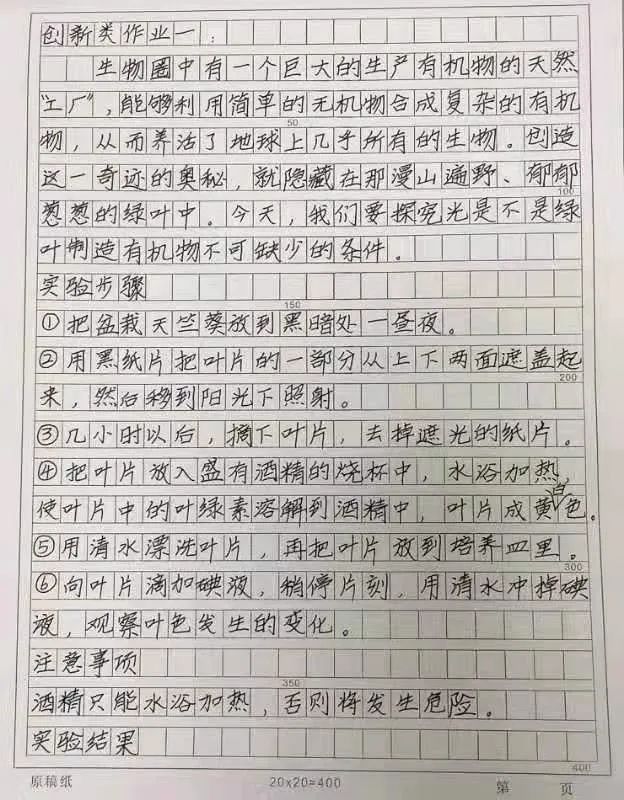 创新类作业一：
生物圈中有一个巨大的生产有机物的天然
“工厂”，能够利用简单的无机物合成复杂的有机
50
物，从而养活了地球上几乎所有的生物。创造
这一奇迹的奥秘，就隐藏在那漫山遍野、郁郁
100
葱葱的绿叶中。今天，我们要探究光是不是绿
叶制造有机物不可缺少的条件。
实验步骤
150
①把盆栽天竺葵放到黑暗处一昼夜。
②用黑纸片把叶片的一部分从上下两面遮盖起
200
来，然后移到阳光下照射。
③几小时以后，摘下叶片，去掉遮光的纸片。
④把叶片放入盛有酒精的烧杯中，水浴加热，
使叶片中的叶绿素溶解到酒精中，叶片成黄白色。
⑤用清水漂洗叶片，再把叶片放到培养皿里。
300
⑥向叶片滴加碘液，稍停片刻，用清水冲掉碘
液，观察叶色发生的变化。
注意事项
350
酒精只能水浴加热，否则将发生危险。
实验结果
400
原稿纸 20x20=400 第 页